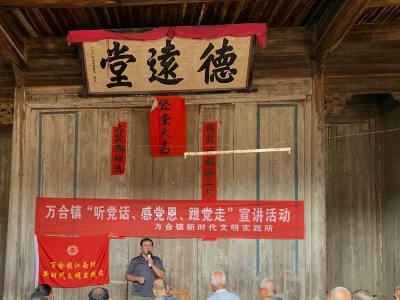 德遠堂
登堂大吉
万合镇“听党话、感党恩、跟党走”宣讲活动
万合镇新时代文明实践所
万合镇江南村
新时代文明实践站